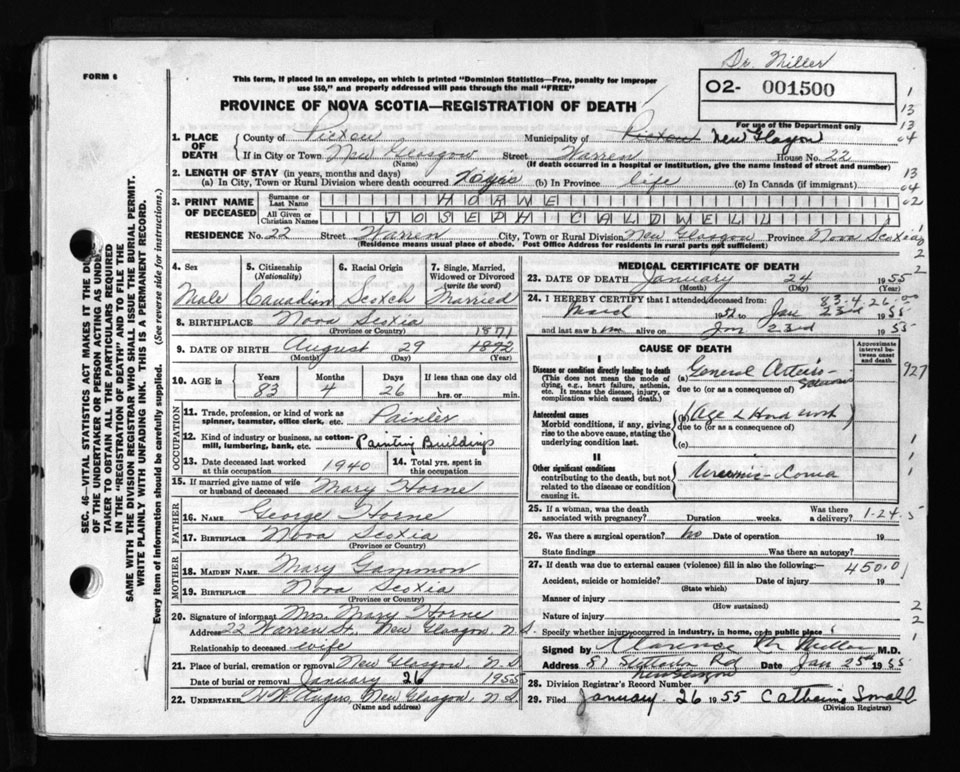 Dr. Miller
FORM 6
This form, if placed in an envelope, on which is printed "Dominion Statistics—Free, penalty for improper
use $50," and properly addressed will pass through the mail "FREE"
02- 001500
For use of the Department only
PROVINCE OF NOVA SCOTIA—REGISTRATION OF DEATH
SEC. 46—VITAL STATISTICS ACT MAKES IT THE DUTY
OF THE UNDERTAKER OR PERSON ACTING AS UNDER-
TAKER TO OBTAIN ALL THE PARTICULARS REQUIRED
IN THE "REGISTRATION OF DEATH" AND TO FILE THE
SAME WITH THE DIVISION REGISTRAR WHO SHALL ISSUE THE BURIAL PERMIT.
WRITE PLAINLY WITH UNFADING INK. THIS IS A PERMANENT RECORD.
Every item of information should be carefully supplied. (See reverse side for instructions.)
1. PLACE OF DEATH County of Pictou Municipality of Pictou New Glasgow
If in City or Town New Glasgow Street Warren House No. 22
(Name) (If death occurred in a hospital or institution, give the name instead of street and number)
2. LENGTH OF STAY (in years, months and days)
(a) In City, Town or Rural Division where death occurred (b) In Province life (c) In Canada (if immigrant)
3. PRINT NAME OF DECEASED Surname or Last Name HORNE
All Given or Christian Names JOSEPH CALDWELL
RESIDENCE No. 22 Street Warren City, Town or Rural Division New Glasgow Province Nova Scotia
(Residence means usual place of abode. Post Office Address for residents in rural parts not sufficient)
4. Sex 5. Citizenship (Nationality) 6. Racial Origin 7. Single, Married, Widowed or Divorced (write the word)
Male Canadian Scotch Married
8. BIRTHPLACE Nova Scotia
(Province or Country)
1871
9. DATE OF BIRTH August 29 1892
(Month) (Day) (Year)
10. AGE in Years Months Days If less than one day old
83 4 26 hrs. or min.
OCCUPATION
11. Trade, profession, or kind of work as spinner, teamster, office clerk, etc. Painter
12. Kind of industry or business, as cotton-mill, lumbering, bank, etc. Painting Buildings
13. Date deceased last worked at this occupation 1940 14. Total yrs. spent in this occupation
15. If married give name of wife or husband of deceased Mary Horne
FATHER
16. NAME George Horne
17. BIRTHPLACE Nova Scotia
(Province or Country)
MOTHER
18. MAIDEN NAME Mary Gammon
19. BIRTHPLACE Nova Scotia
(Province or Country)
20. Signature of informant Mrs. Mary Horne
Address 22 Warren St., New Glasgow, N.S.
Relationship to deceased wife
21. Place of burial, cremation or removal New Glasgow, N.S
Date of burial or removal January 26 1955
22. UNDERTAKER New Glasgow, N.S.
(Name and address)
MEDICAL CERTIFICATE OF DEATH
23. DATE OF DEATH January 24 1955
(Month) (Day) (Year)
83-4-26
24. I HEREBY CERTIFY that I attended deceased from:
March 1952 to Jan 23rd 1955
and last saw him alive on Jan 23rd 1955
CAUSE OF DEATH
Approximate interval between onset and death
I
Disease or condition directly leading to death
(This does not mean the mode of dying, e.g., heart failure, asthenia, etc. It means the disease, injury, or complication which caused death.)
(a) General Arterio-
due to (or as a consequence of)
927
Antecedent causes
Morbid conditions, if any, giving rise to the above cause, stating the underlying condition last.
(b) Age & Hard work
due to (or as a consequence of)
(c)
II
Other significant conditions contributing to the death, but not related to the disease or condition causing it.
Uraemic-Coma
25. If a woman, was the death associated with pregnancy? Duration weeks. Was there a delivery? 1-24-5
26. Was there a surgical operation? No Date of operation 19
State findings Was there an autopsy?
27. If death was due to external causes (violence) fill in also the following:— 450.0
Accident, suicide or homicide? Date of injury 19
(State which)
Manner of injury
(How sustained)
Nature of injury
Specify whether injury occurred in industry, in home, or in public place
Signed by Clarence M Miller M.D.
Address 81 Stellarton Rd Date Jan 25th 1955
New Glasgow
28. Division Registrar's Record Number
29. Filed January 26 1955 Catharine Small
(Division Registrar)
1
13
13
04
13
04
02
2
2
1
1
1
2
2